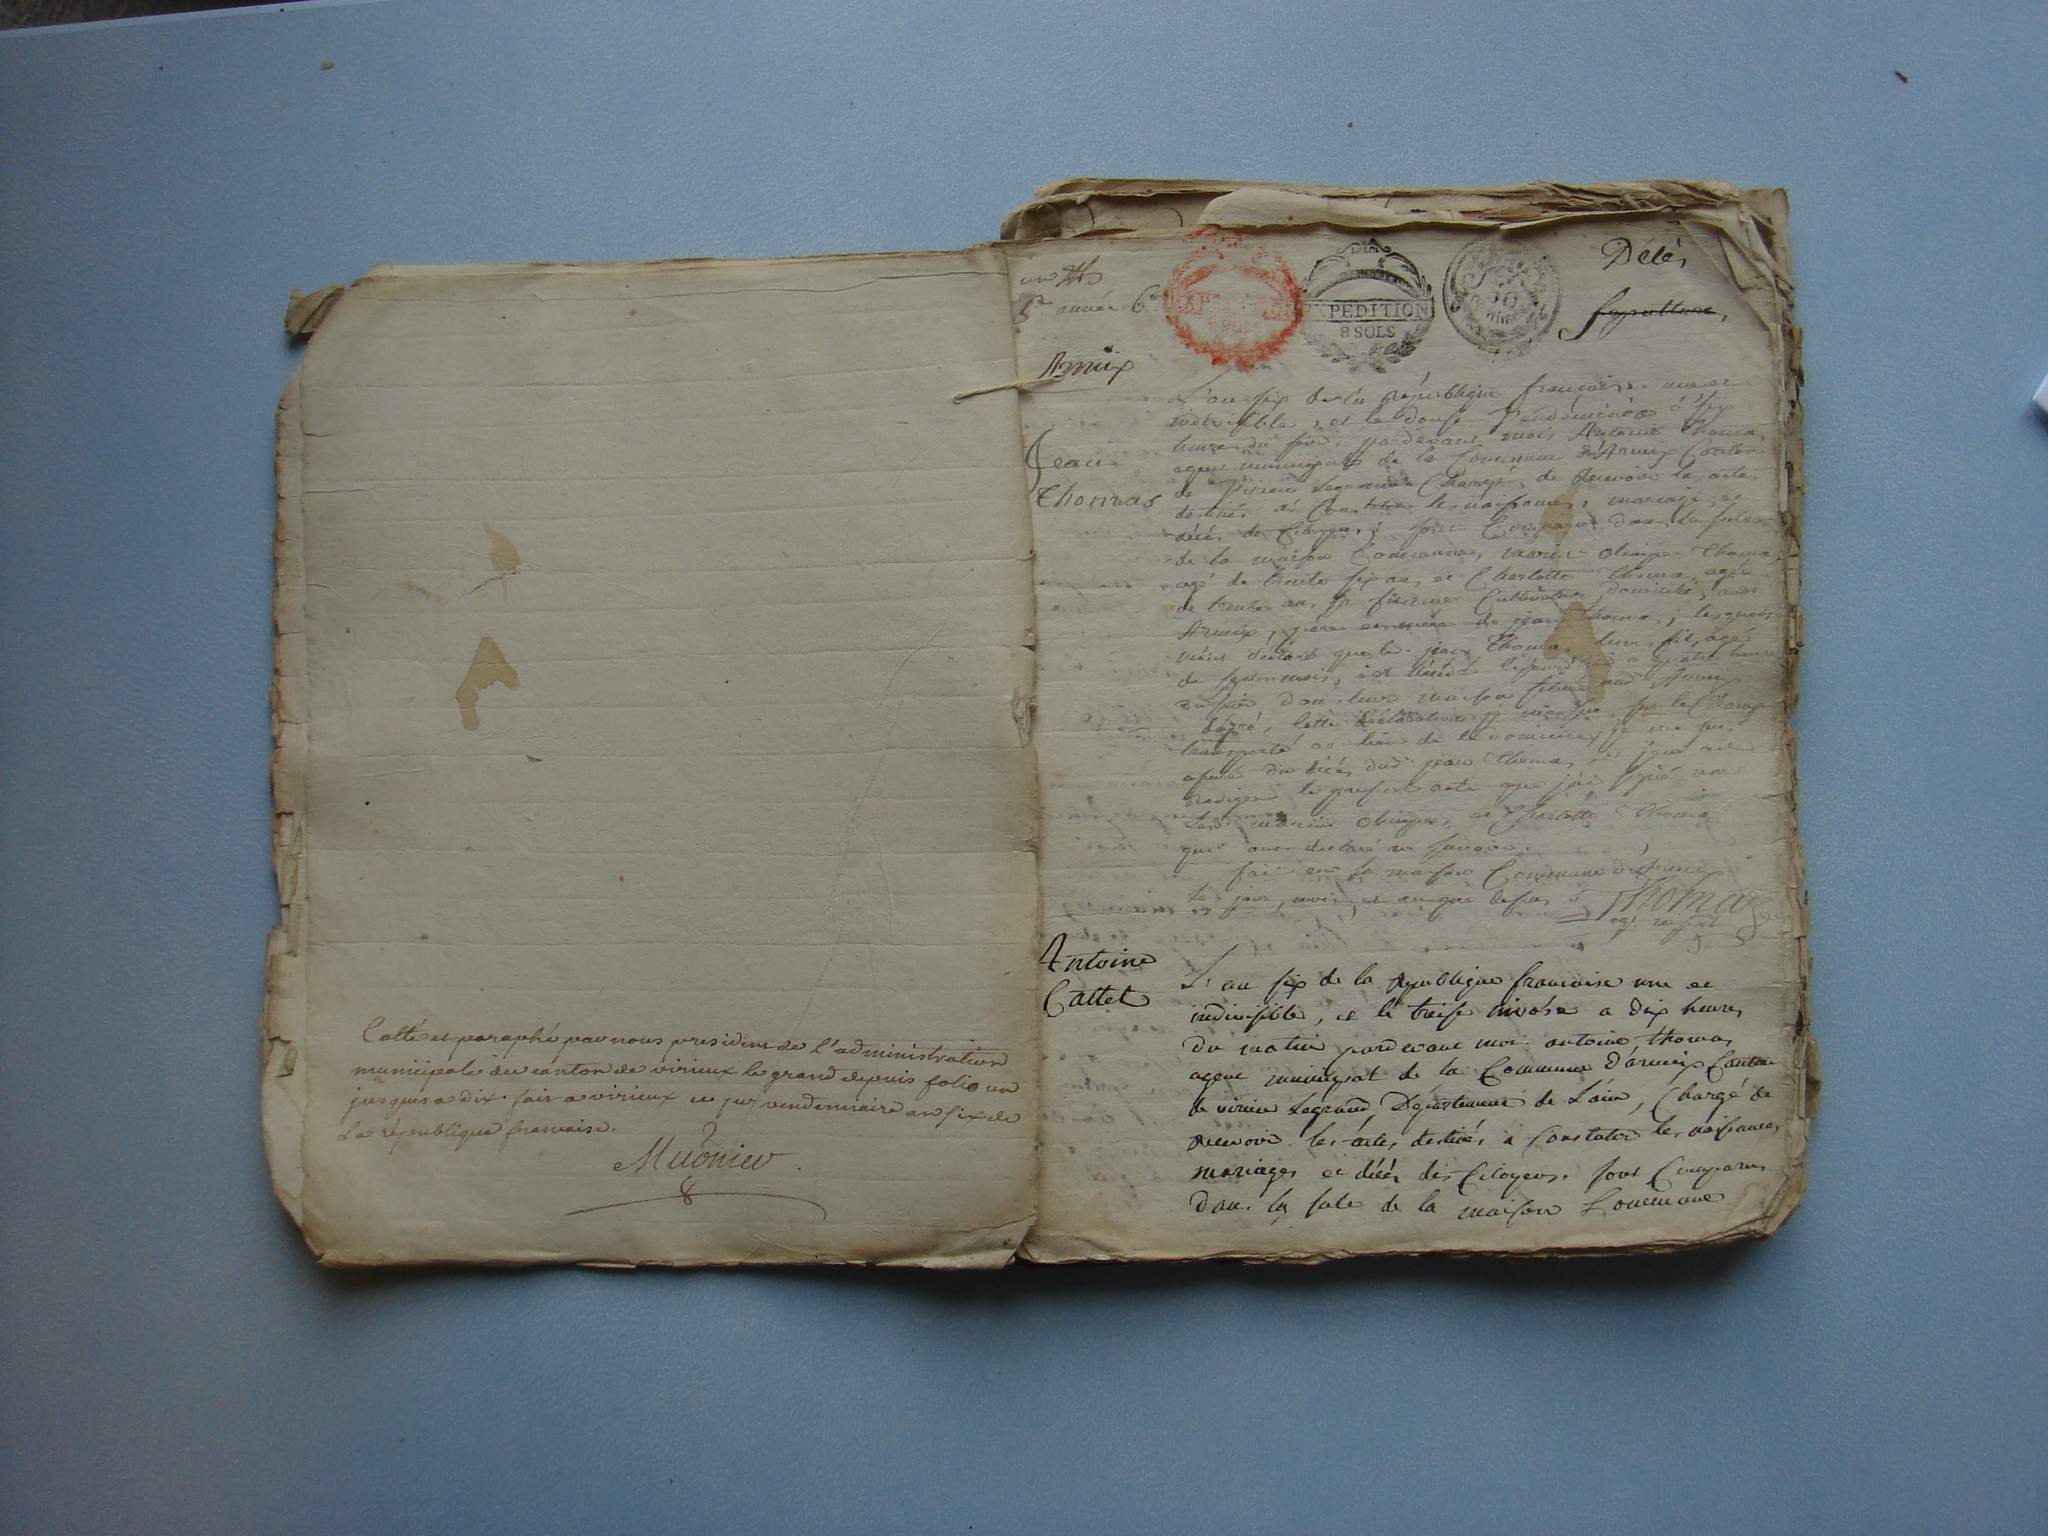 Cotté et paraphé par nous president de l'administration
municipale du canton de virieux le grand depuis folio un
jusques a dix. fait a virieux ce 1er vendemiaire an six de
La république francaise.
Muonier
un
année 6e
EXPEDITION
8 SOLS
Décès
Sepulture,
Armix
Jean
Thomas
L'an six de la République française une et
indivisible, et le douse Vendemiaire à six
heures du soir, pardevant moi Antoine Thomas,
agent municipal de la Commune d'Armix Canton
de Virieu Legrand Chargé, de Recevoir les actes
destinés à Constater les naissances, mariages et
décès des Citoyens; sont Comparus dans la sale
de la maison Commune, Marin olinpe Thomas
agé de trente six ans, et Charlotte Thomas, agée
de trente ans, sa femme Cultivateurs domiciliés, aud.
Armix, père et mère de jean Thomas; lesquels
m'ont déclaré que le. jean Thomas leur fils, agé
de mois, est décédé à quatre heures
du soir dans leur maison située aud. Armix
d'après, cette déclaration je me suis, sur le Champ
transporté au lieu de le domicile, je me suis
assuré du décès dud. jean Thomas, et j'en ai
rédigé le present acte que j'ai signé non
Lesd. marin olinpe, et Charlotte Thomas
qui ont declaré ne savoir.
fait en la maison Commune d'Armix
Les jour, mois, et an que dessus
Thomas
ag. mpal
Antoine
Cattet
L'an six de la Republique francaise une et
indivisible, et le treise nivôse a dix heures
du matin pardevant moi antoine, Thomas,
agent municipal de la Commune D'armix Canton
de virieu Legrand, Département de L'ain, Chargé de
recevoir les actes, destinés, a Constater les naissances,
mariages et décès des Citoyens. sont Comparus
dans la sale de la maison Commune